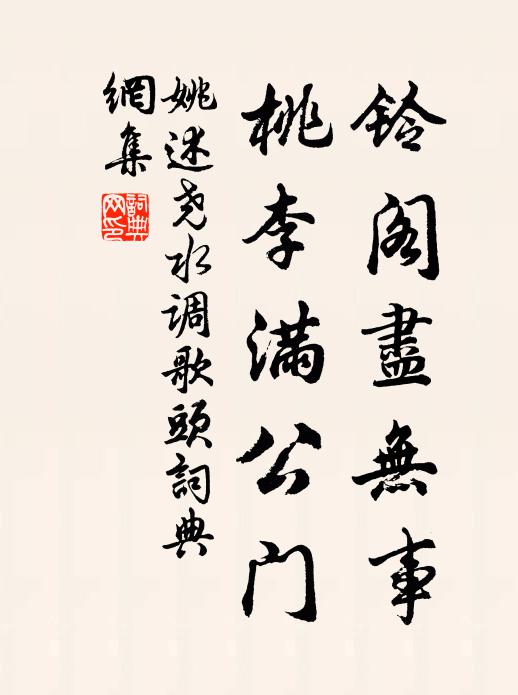 铃阁盡無事
桃李满公门
姚述尧水调歌頭詞典
網集
詞典
网印